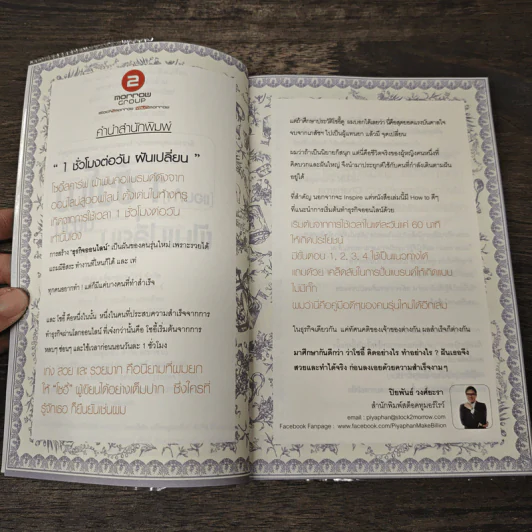 2
morrow
GROUP
คำนำสำนักพิมพ์
“ 1 ชั่วโมงต่อวัน ฝันเปลี่ยน ”
ที่ใช้เวลา 1 ชั่วโมงต่อวัน
เท่านั้นเอง
การสร้าง ‘ธุรกิจออนไลน์’ เป็นฝันของคนรุ่นใหม่ เพราะรวยได้
แถมมีอิสระ ทำงานที่ไหนก็ได้ และ เท่
ทุกคนอยากทำ แต่ก็มีแค่บางคนที่ทำสำเร็จ
และ โซอี้ คือหนึ่งในนั้น หนึ่งในคนที่ประสบความสำเร็จจากการ
ทำธุรกิจผ่านโลกออนไลน์ ที่เจ๋งกว่านั้นคือ โซอี้เริ่มต้นจากการ
หลบๆ ซ่อนๆ และใช้เวลาก่อนนอนวันละ 1 ชั่วโมง
เก่ง สวย และ รวยมาก คือนิยามที่ผมยก
ให้ “โซอี้” ผู้เขียนได้อย่างเต็มปาก ซึ่งใครที่
รู้จักเธอ ก็ยืนยันเช่นผม
แต่ถ้าศึกษาประวัติโซอี้ดู ผมบอกได้เลยว่า นี่คือสุดยอดแรงบันดาลใจ
จบจากเภสัชฯ ไปเป็นผู้แทนยา แล้วมี จุดเปลี่ยน
ผมว่าถ้าเป็นนิยายก็สนุก แต่นี่คือชีวิตจริงของผู้หญิงคนหนึ่งที่
คิดบวกและฝันใหญ่ จึงนำมาประยุกต์ใช้กับคนที่กำลังเดินตามฝัน
อยู่ได้
ที่สำคัญ นอกจากจะ Inspire แต่หนังสือเล่มนี้มี How to ดีๆ
ที่แนะนำการเริ่มต้นทำธุรกิจออนไลน์ด้วย
เริ่มต้นจากการใช้เวลาในแต่ละวันแค่ 60 นาที
ให้เกิดประโยชน์
มีขั้นตอน 1, 2, 3, 4 ใช้เป็นแนวทางได้
แถมด้วย เคล็ดลับในการปั้นแบรนด์ให้เกิดแบบ
ไม่มีกั๊ก
ผมว่านี่คือคู่มือดีๆของคนรุ่นใหม่ได้อีกเล่ม
ในธุรกิจเดียวกัน แต่ทัศนคติของเจ้าของต่างกัน ผลสำเร็จก็ต่างกัน
มาศึกษากันดีกว่า ว่าโซอี้ คิดอย่างไร ทำอย่างไร ? ฝันเธอจึง
สวยและทำได้จริง ก่อนลงเอยด้วยความสำเร็จงามๆ
ปิยพันธ์ วงศ์ยะรา
สำนักพิมพ์สต็อคทูมอร์โรว์
email : piyaphan@stock2morrow.com
Facebook Fanpage : www.facebook.com/PiyaphanMakeBillion